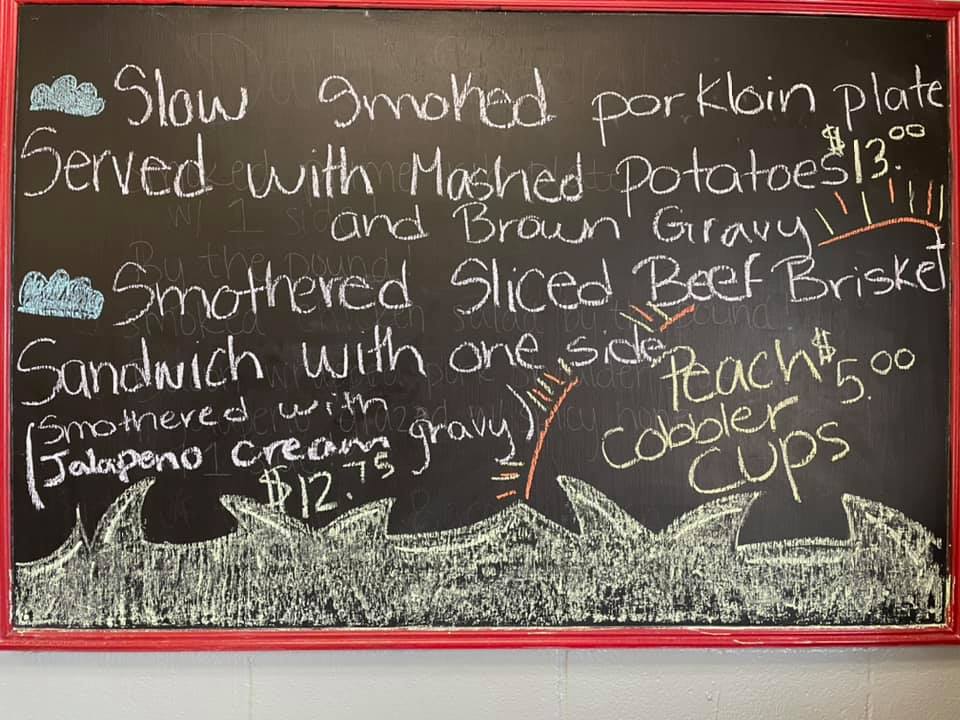 Slow Smoked porkloin plate
Served with Mashed Potatoes $13.00
and Brown Gravy
Smothered Sliced Beef Brisket
Sandwich with one side
(Smothered with
Jalapeno cream gravy)
$12.75
Peach $5.00
Cobbler
Cups